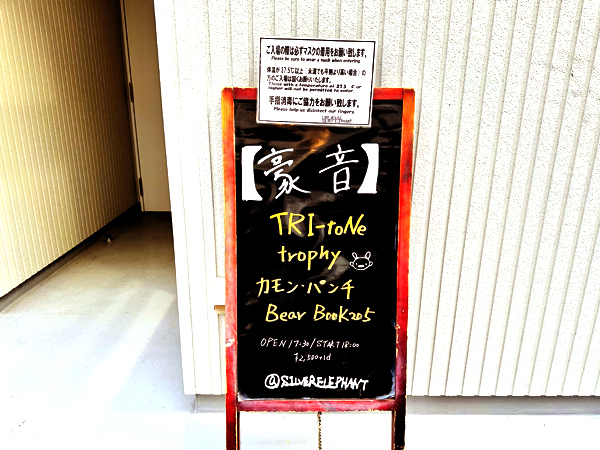 ご入場の際は必ずマスクの着用をお願い致します。
Please be sure to wear a mask when entering
体温が37.5℃以上(未満でも平熱より高い場合)の
方のご入場は固くお断りいたします。
Those with a temperature of 37.5 ℃ or
higher will not be permitted to enter.
手指消毒にご協力をお願い致します。
Please help us disinfect our fingers
【豪音】
TRI-toNe
trophy
カモン・パンチ
Bear Book205
OPEN 17:30/START 18:00
¥2,500+1d
@SILVERELEPHANT